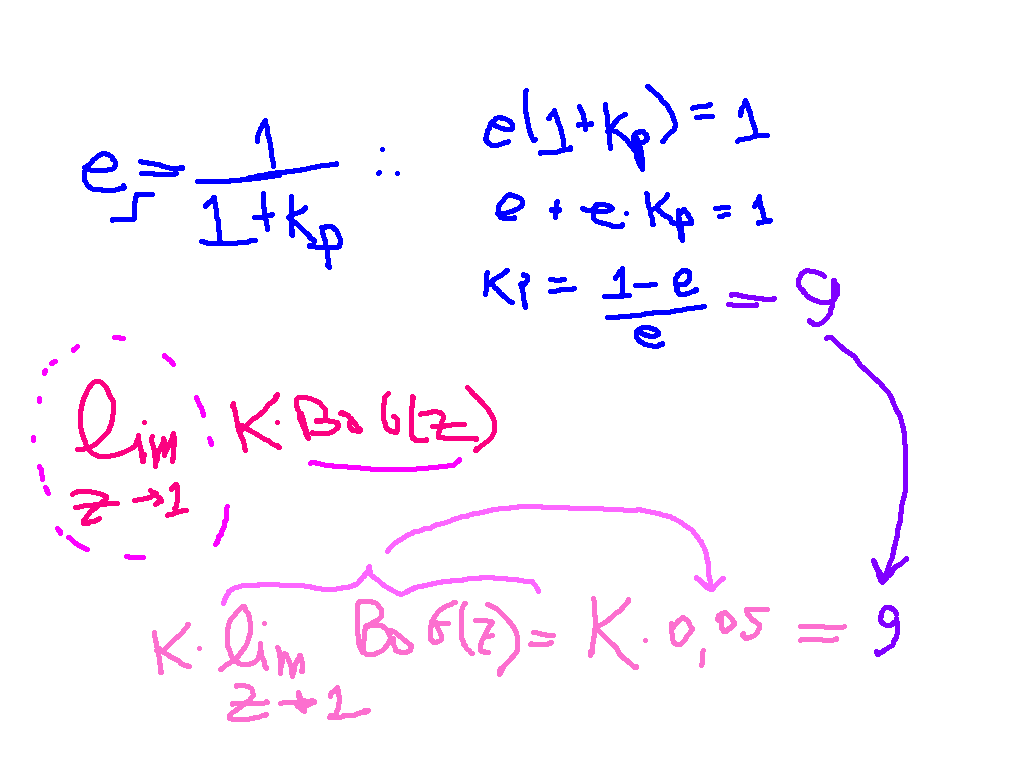 e = 1/(1+Kp) ∴
e(1+Kp) = 1
e + e·Kp = 1
KP = (1-e)/e = 9
lim z→1 K·B₀G(z)
K·lim z→1 B₀G(z) = K·0,05 = 9